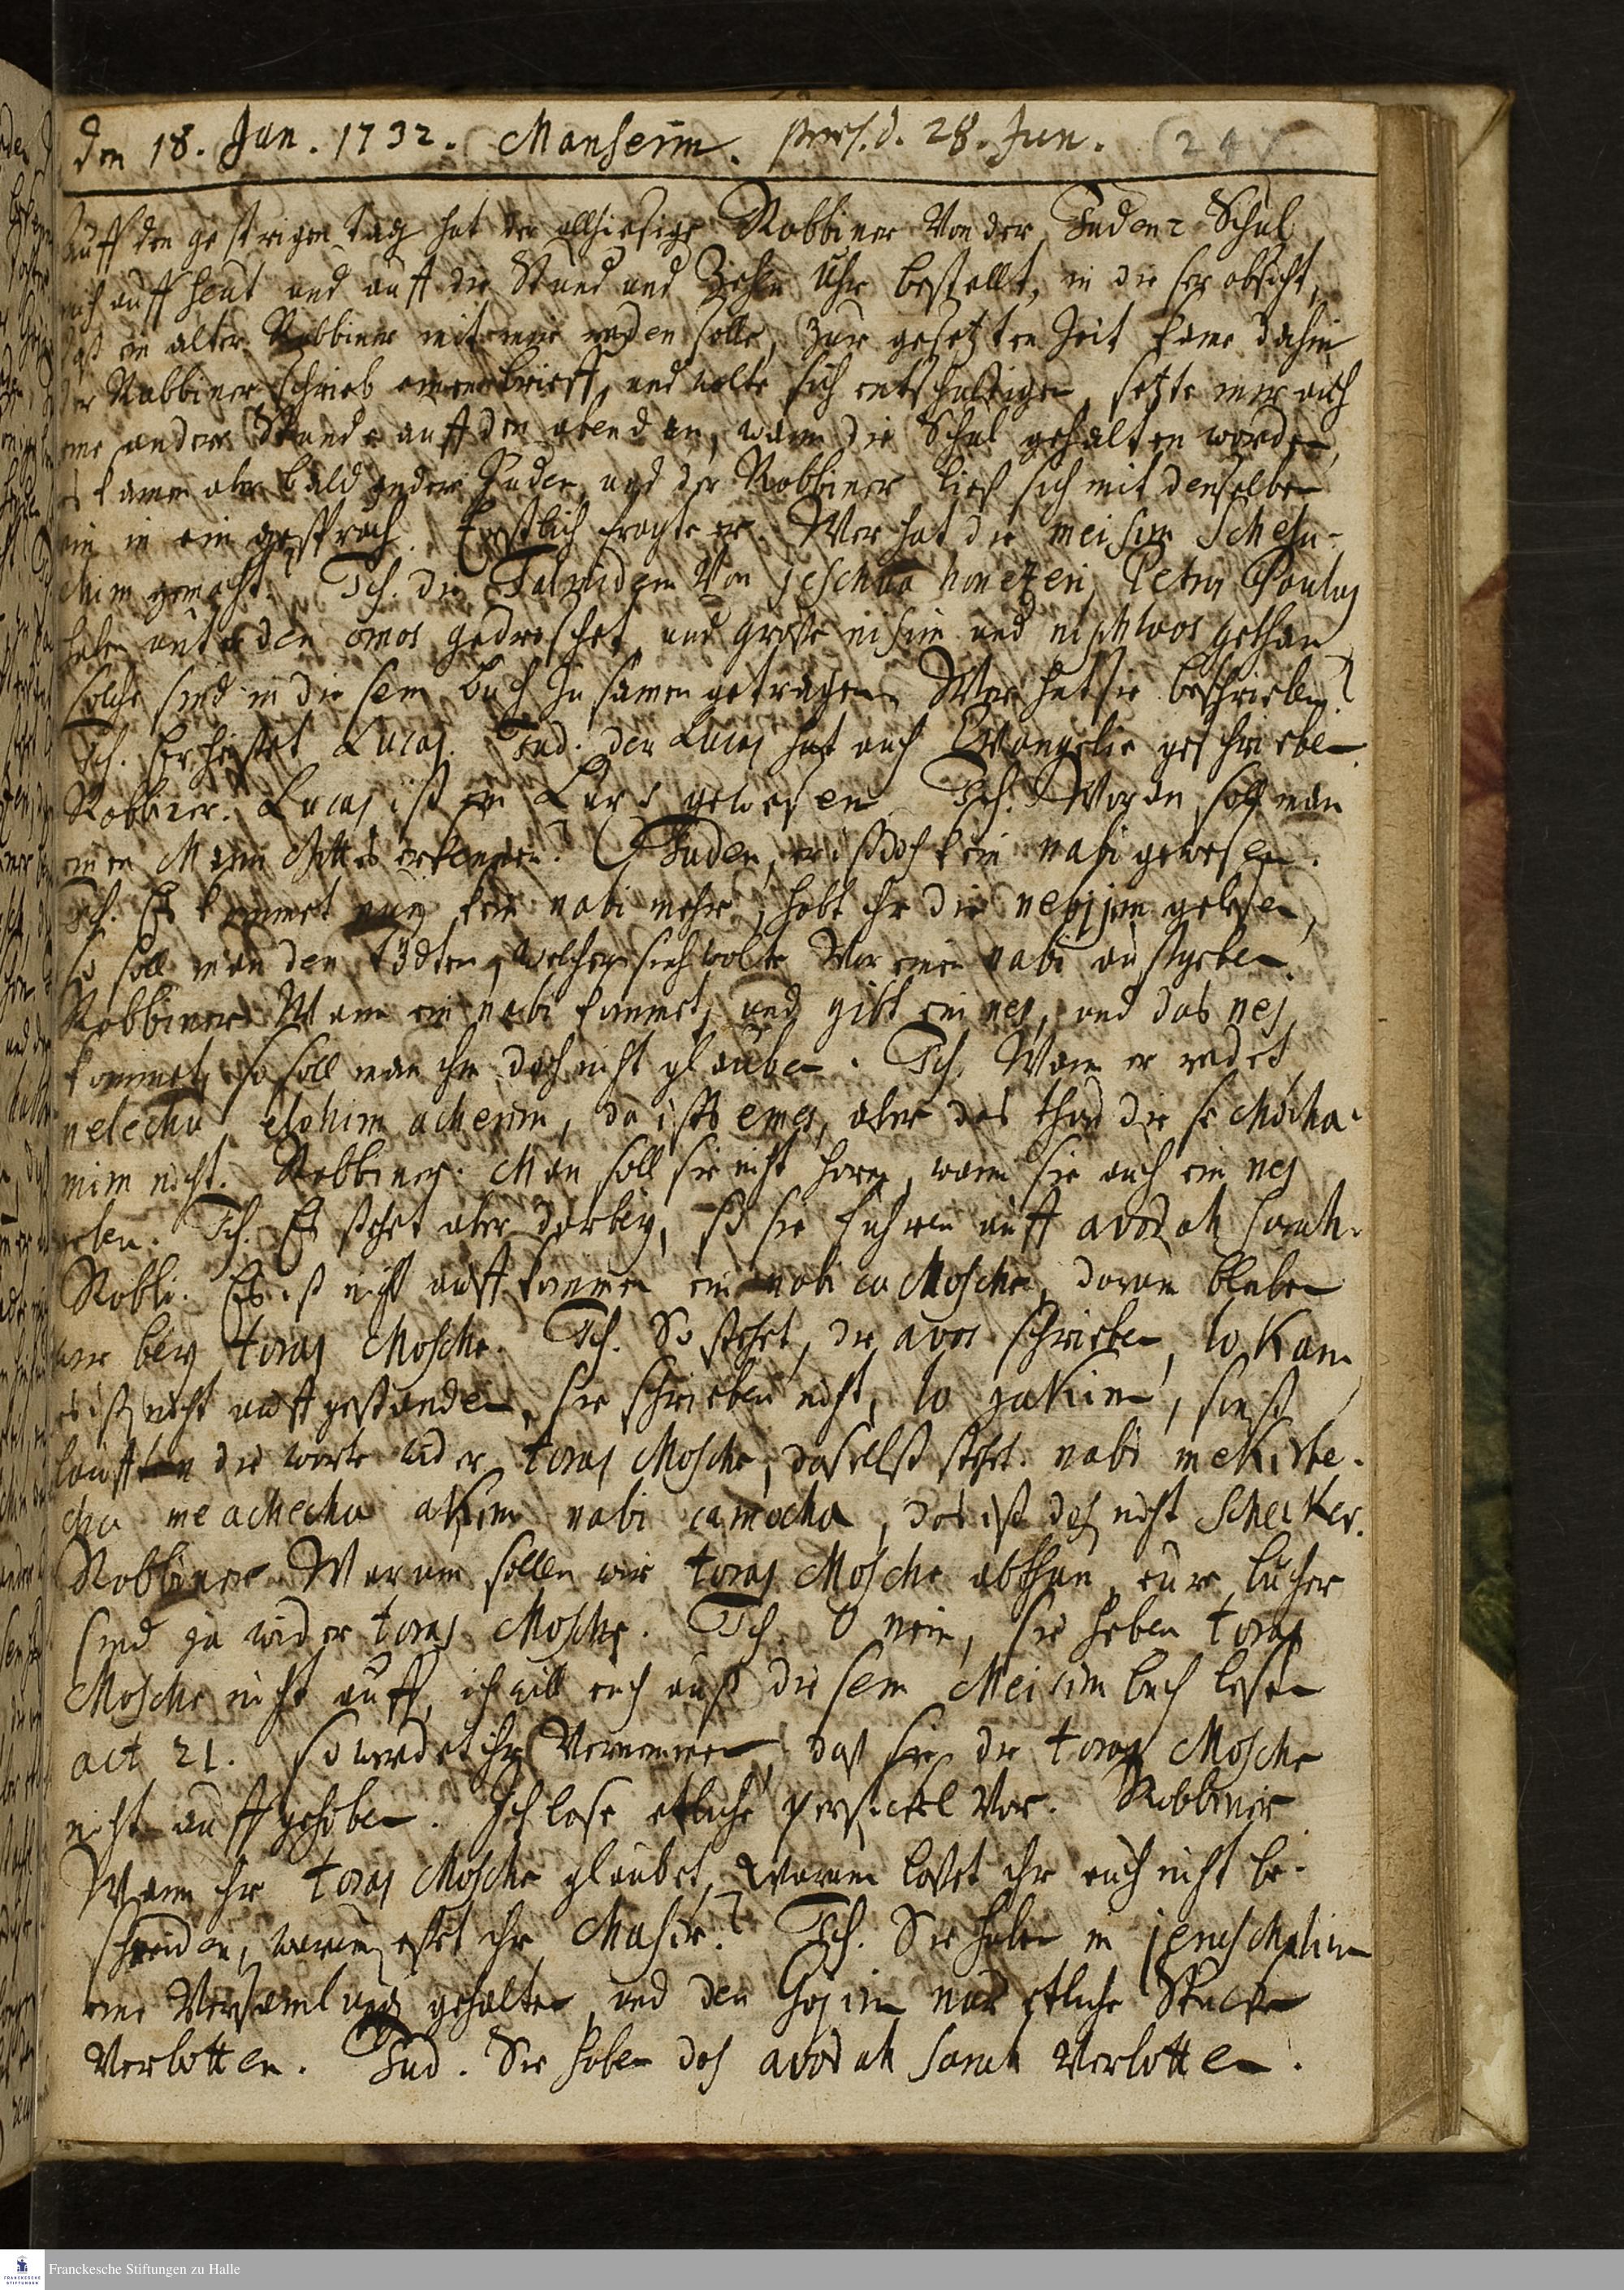 den 18. Jun. 1732. Manheim. præs. d. 28. Jun. (247
Auff den gestrigen tag hat der allhiesige Rabbiner Von der Juden= Schul
mich auff heut und auff die Stund und Zehn Uhr bestellt, in dieser absicht,
daß ein alter Rabbiner mit mir reden solle, Zur gesetzten Zeit kame dahin
der Rabbiner schrieb einen brieff, und wolte sich entschuldigen, setzte mir auch
eine andere Stunde auff den abend an, wann die Schul gehalten worden,
es kamen aber bald andere Juden, und der Rabbiner ließ sich mit denselben
ein in ein gespräch. Erstlich fragte er. Wer hat die meisim Scheln=
chim gemacht? Ich. die Talmidem Von jeschua hanozeri, Petrus Paulus
haben unter den omos gedroschet, und große nisim und niphloos gethan
solche sind in diesem buch Zusamen getragen. Wer hat sie beschrieben?
Ich. Er heißet Lucas. Jud. der Lucas hat auch Evangelie geschrieben.
Rabbiner. Lucas ist ein Lard gewesen. Ich. Woran soll man
einen Mann Gottes erkennen? Juden, er ist doch kein nabi gewesen.
Ich. Es kommet nun kein nabi mehr, habt ihr die nevijim gelesen,
so soll man den tödten, welcher sich wolte Vor einen nabi ausgeben.
Rabbiner Wann ein nabi kommet, und gibt ein nes, und das nes
kommet, so soll man ihm doch nicht glauben. Ich. Wann er redet
nelecha elohim acherim, da ists emes, aber das thun diese Chacha=
mim nicht. Rabbiner. Man soll sie nicht horen, wann sie auch ein nes
geben. Ich. Es stehet aber darbey, so sie fuhren auff avodah sarah.
Rabbi. Es ist nicht auffkommen ein nabi ca Mosche, darum bleiben
wir bey toras Mosche. Ich. So stehet, die avos schrieben, lo kam
es ist nicht auffgestanden, sie schrieben nicht, lo jakim, sonst
lauffen die worte wider toras Mosche, daselbst stehet nabi mekirbe=
cha meachecha akim nabi camocha, das ist doch nicht Scheker.
Rabbiner Warum sollen wir toras Mosche abthun, eure bücher
sind ja wider toras Mosche. Ich. O nein, sie heben toras
Mosche nicht auff, ich will euch auß diesem Meisim buch lesen
act 21. so werdet ihr Vernemmen, daß sie die toras Mosche
nicht auffgehoben. Ich lase etliche persickel Vor. Rabbiner
Wann ihr toras Mosche glaubet, warum lasset ihr euch nicht be=
schneiden, warum esset ihr Chasir? Ich. Sie haben in jeruschalim
eine Versamlung gehalten, und den Gojim nur etliche Stucke
Verbotten. Jud. Sie haben doch avodah sarah Verbotten.
Franckesche Stiftungen zu Halle